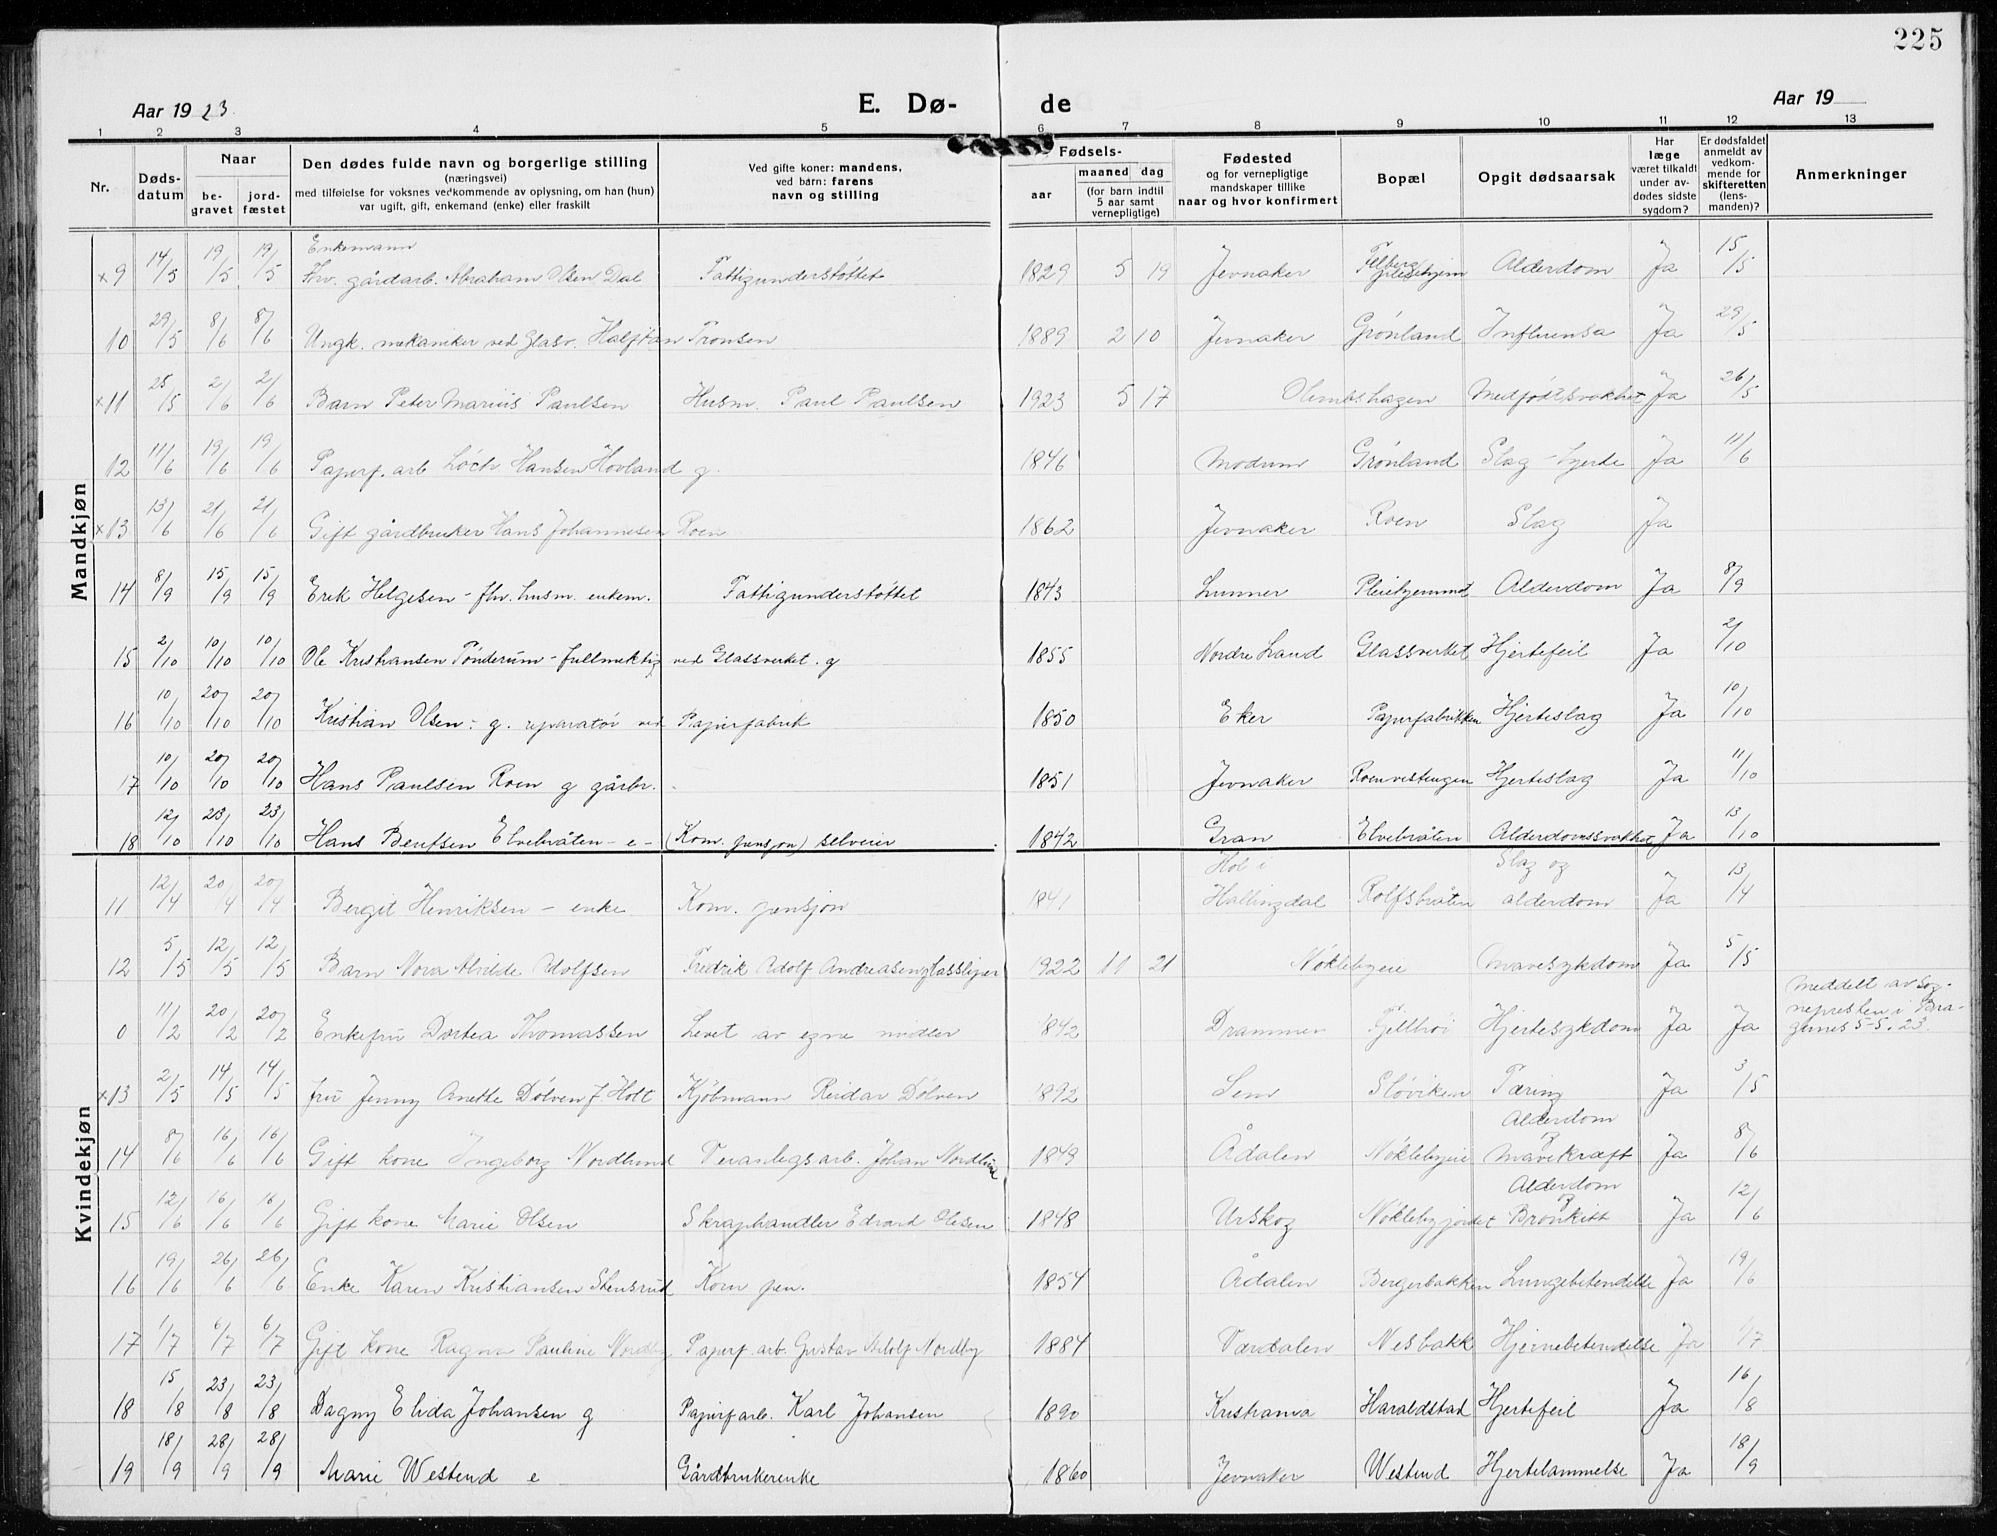 225
Aar 1923 E. Dø- de Aar 19
1 2 3 4 5 6 7 8 9 10 11 12 13
Nr. Døds-datum Naar be-gravet jord-fæstet Den dødes fulde navn og borgerlige stilling (næringsvei) med tilføielse for voksnes vedkommende av oplysning, om han (hun) var ugift, gift, enkemand (enke) eller fraskilt Ved gifte koner: mandens, ved barn: farens navn og stilling Fødsels- aar maaned dag (for barn indtil 5 aar samt vernepligtige) Fødested og for vernepligtige mandskaper tillike naar og hvor konfirmert Bopæl Opgit dødsaarsak Har læge været tilkaldt under av-dødes sidste sygdom? Er dødsfaldet anmeldt av vedkom-mende for skifteretten (lens-manden)? Anmerkninger
Mandkjøn
Enkemann
x9 14/5 19/5 19/5 Fhv. gårdarb. Abraham Olsen Dal Fattigunderstøttet 1829 5 19 Jevnaker Alderdom Ja 15/5
10 29/5 8/6 8/6 Ungk. mekaniker ved Glasv. Halfdan Tronsen 1889 2 10 Jevnaker Grønland Influensa Ja 29/5
x11 25/5 2/6 2/6 Barn Peter Marius Paulsen Husm. Paul Paulsen 1923 5 17 Olimbshagen Medfødt svakhet Ja 26/5
12 11/6 19/6 19/6 Papirf. arb. Hansen Hovland g. 1846 Modum Grønland Slag - hjerte Ja 11/6
x13 13/6 21/6 21/6 Gift gårdbruker Hans Johannesen Roen 1862 Jevnaker Roen Slag Ja
14 8/9 15/9 15/9 Erik Helgesen - fhv. husm. enkem. Fattigunderstøttet 1843 Lunner Pleiehjemmet Alderdom Ja 8/9
15 2/10 10/10 10/10 Ole Kristiansen Tønderum - fullmektig ved Glassverket. g 1855 Nordre Land Glassverket Hjertefeil Ja 2/10
16 10/10 20/10 20/10 Kristian Olsen - g. reparatør ved Papirfabrik 1850 Eker Papirfabrikken Hjerteslag Ja 10/10
17 10/10 20/10 20/10 Hans Paulsen Roen g gårbr. 1851 Jevnaker Roenvestengen Hjerteslag Ja 11/10
18 12/10 23/10 23/10 Hans Bentsen Elvebråten - e - (Kom. pensjon) selveier 1842 Gran Elvebråten Alderdomssvakhet Ja 13/10
Kvindekjøn
11 12/4 20/4 20/4 Bergit Henriksen - enke Kom. pensjon 1841 Hol i Hallingdal Rolfsbråten Slag og alderdom Ja 13/4
12 5/5 12/5 12/5 Barn Nora Alvilde Adolfsen Fredrik Adolf Andreasen glassliper 1922 11 21 Nøklebyeie Mavesykdom Ja 5/5
0 11/2 20/2 20/2 Enkefru Dortea Thomassen Levet av egne midler 1842 Drammen Fjellhøi Hjertesykdom Ja Ja Meddelt av sog-
nepresten i Bra-
gernes 5-5. 23.
x13 2/5 14/5 14/5 fru Jenny Anette Dølven f. Holt Kjøbmann Reidar Dølven 1892 Sem Sløviken Tæring Ja 3/5
14 8/6 16/6 16/6 Gift kone Ingeborg Nordlund Veranlegsarb. Johan Nordlund 1849 Ådalen Nøklebyeie Alderdom og mavekræft Ja 8/6
15 12/6 16/6 16/6 Gift kone Marie Olsen Skraphandler Edvard Olsen 1848 Urskog Nøklebyjordet Alderdom og Bronkitt Ja 12/6
16 19/6 26/6 26/6 Enke Karen Kristiansen Stensrud Kom pen. 1854 Ådalen Bergerbakken Lungebetendelse Ja 19/6
17 1/7 6/7 6/7 Gift kone Ragna Pauline Nordby Papirf. arb. Gustav Adolf Nordby 1884 Værdalen Nesbakk Hjernebetendelse Ja 1/7
18 15/8 23/8 23/8 Dagny Elida Johansen g Papirfarb. Karl Johansen 1890 Kristiania Haraldstad Hjertefeil Ja 16/8
19 18/9 28/9 28/9 Marie Westend e Gårdbrukerenke 1860 Jevnaker Westend Hjertelammelse Ja 18/9